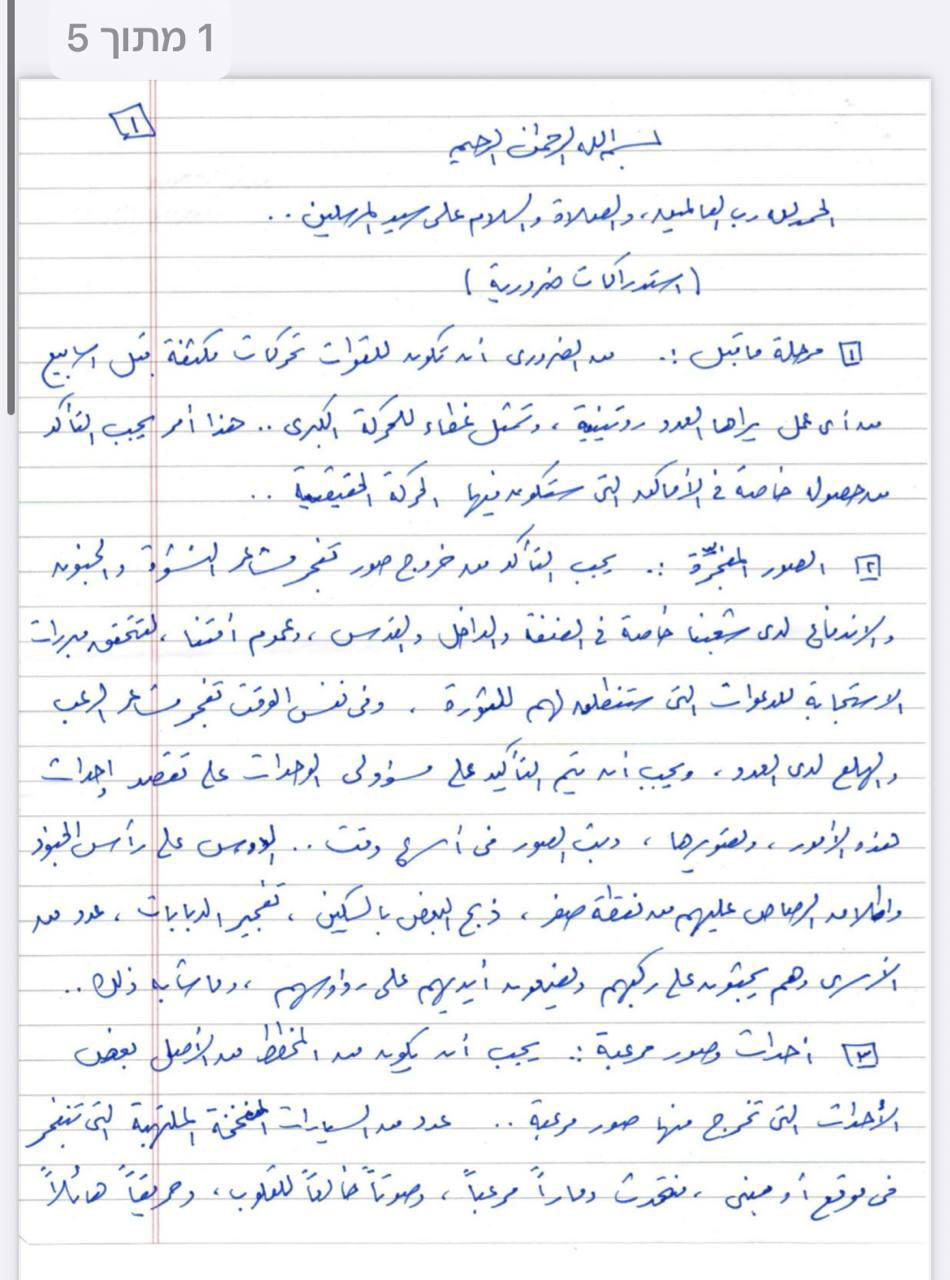 1 מתוך 5
١
بسم الله الرحمن الرحيم
الحمد لله رب العالمين، والصلاة والسلام على سيد المرسلين..
(استدراكات ضرورية)
١ مرحلة ما قبل :. من الضروري أن تكون للقوات تحركات مكثفة قبل اسابيع
من أي عمل يراها العدو روتينية، وتمثل غطاء للحركة الكبرى.. هذا أمر يجب التأكد
من حصوله خاصة في الأماكن التي ستكون فيها الحركة الحقيقية ..
٢ الصور المفجِّرة :. يجب التأكد من خروج صور تفجر مشاعر النشوة والجنون
والاندفاع لدى شعبنا خاصة في الضفة والداخل والقدس، وعموم أمتنا، لتتحقق مبررات
الاستجابة للدعوات التي ستنطلق لهم للثورة . وفي نفس الوقت تفجر مشاعر الرعب
والهلع لدى العدو، ويجب أن يتم التأكيد على مسؤولي الوحدات على تقصد إحداث
هذه الأمور، وتصويرها، وبث الصور في أسرع وقت.. الدوس على رأس الجنود
واطلاق الرصاص عليهم من نقطة صفر، ذبح البعض بالسكين، تفجير الدبابات، عدد من
الأسرى وهم يجثون على ركبهم ويضعون أيديهم على رؤوسهم، وما شابه ذلك..
٣ أحداث وصور مرعبة :. يجب أن يكون من المخطط من الأصل بعض
الأحداث التي تخرج منها صور مرعبة .. عدد من السيارات المفخخة الملتهبة التي تنفجر
في موقع أو مبنى، فتحدث دماراً مرعباً، وصوتاً خالعاً للقلوب، وحريقاً هائلاً